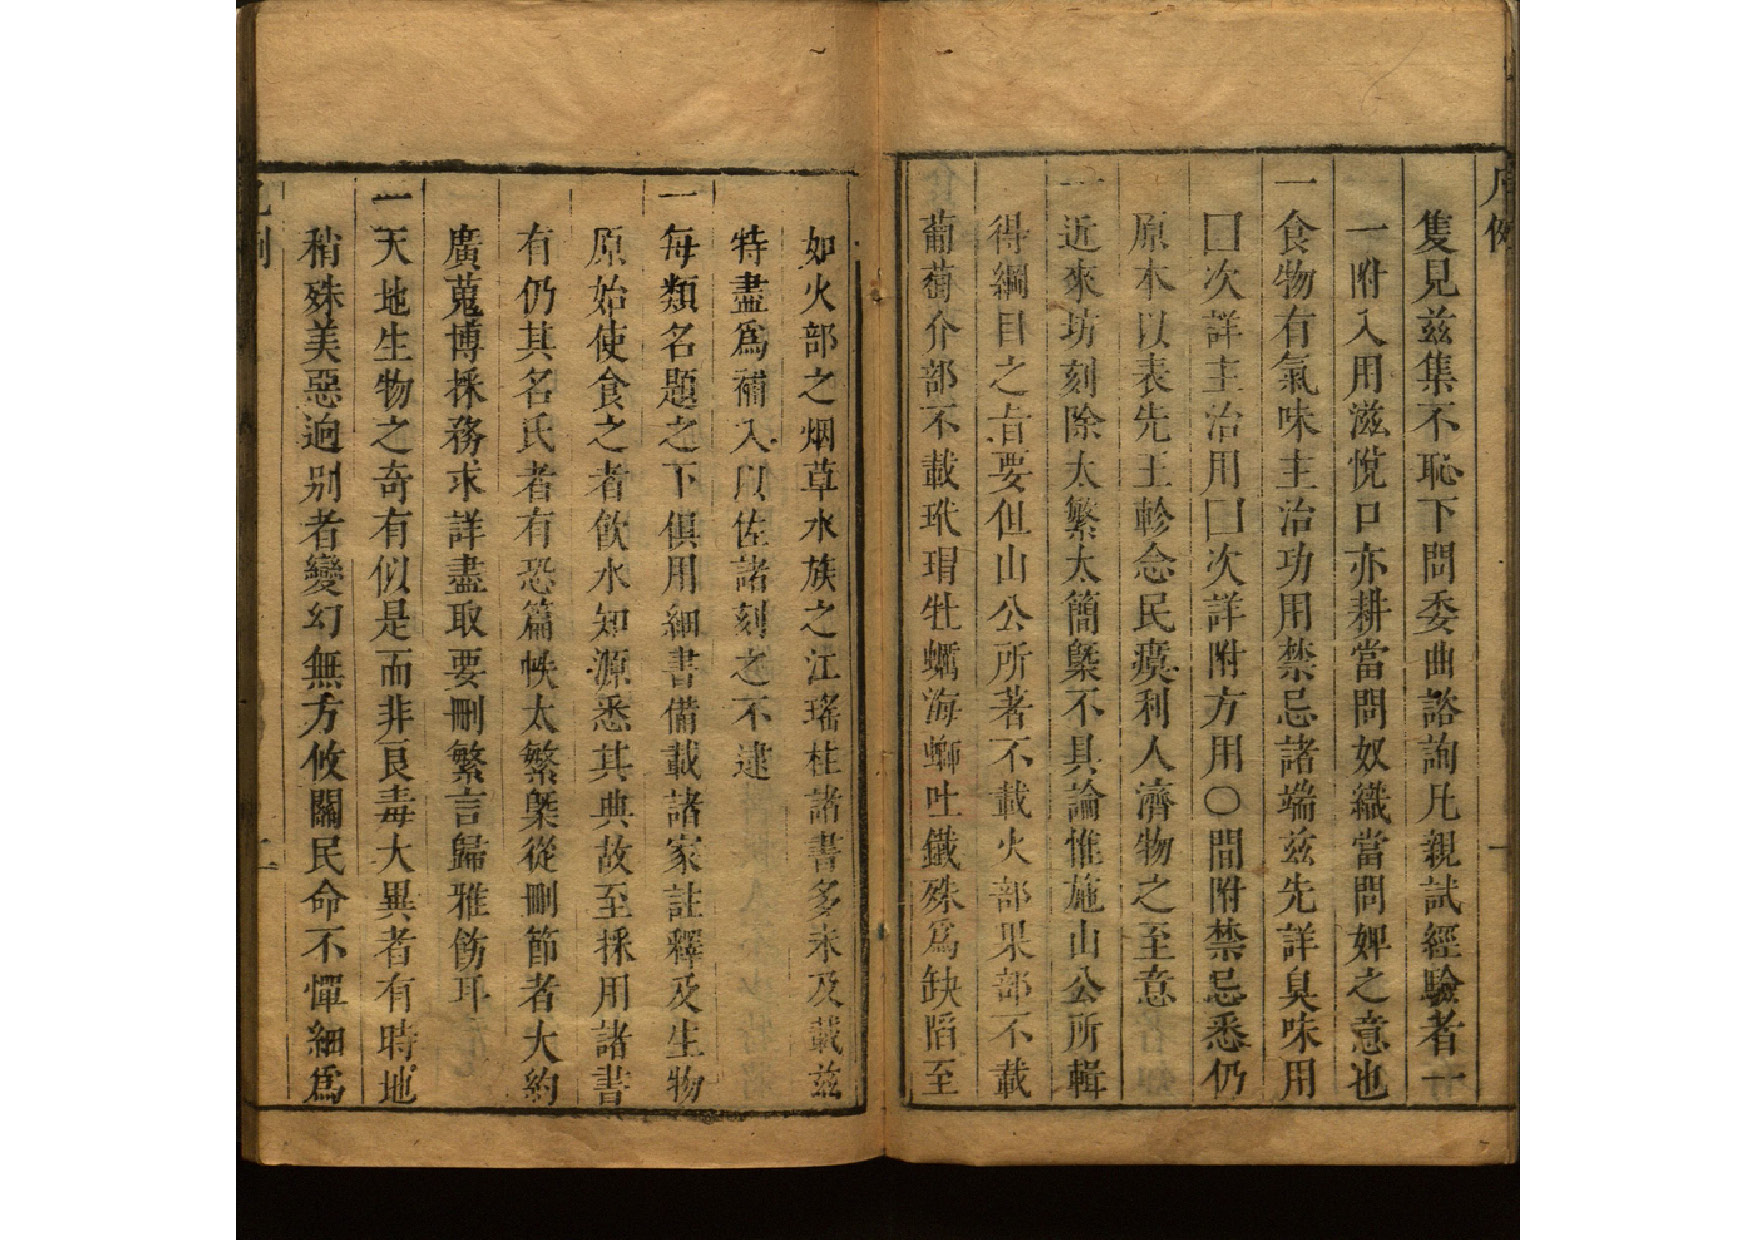 凡例
隻見茲集不恥下問委曲諮詢凡親試經驗者十
一附入用滋悅口亦耕當問奴織當問婢之意也
一食物有氣味主治功用禁忌諸端茲先詳臭味用
囗次詳主治用囗次詳附方用〇間附禁忌悉仍
原本以表先王軫念民瘼利人濟物之至意
一近來坊刻除太繁太簡槩不具論惟施山公所輯
得綱目之旨要但山公所著不載火部果部不載
葡萄介部不載玳瑁牡蠣海螄吐鐵殊爲缺陷至
一
如火部之烟草水族之江瑤柱諸書多未及載茲
特盡爲補入以佐諸刻之不逮
一每類名題之下俱用細書備載諸家註釋及生物
原始使食之者飲水知源悉其典故至採用諸書
有仍其名氏者有恐篇帙太繁槩從刪節者大約
廣蒐博採務求詳盡取要刪繁言歸雅飭耳
一天地生物之奇有似是而非良毒大異者有時地
稍殊美惡逈别者變幻無方攸關民命不憚細爲
凡例
二